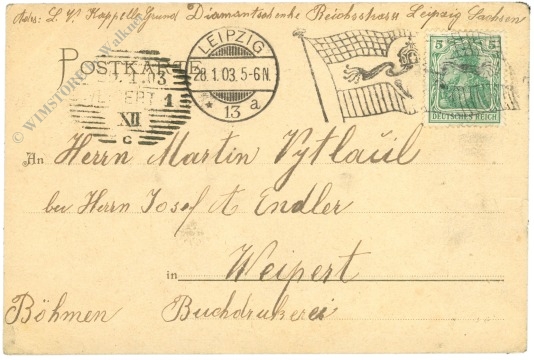 Adrs: L. V. Kappelle Grund Diamantschenke Reichsstrass Leipzig Sachsen
POSTKARTE
LEIPZIG
28.1.03. 5-6N.
* 13 a
1.03
WEIPERT 1
XII
C
5 5
DEUTSCHES REICH
An Herrn Martin Vytlačil
bei Herrn Josef A Endler
in Weipert
Böhmen Buchdrukerei
© WIMSTORIA Walkner